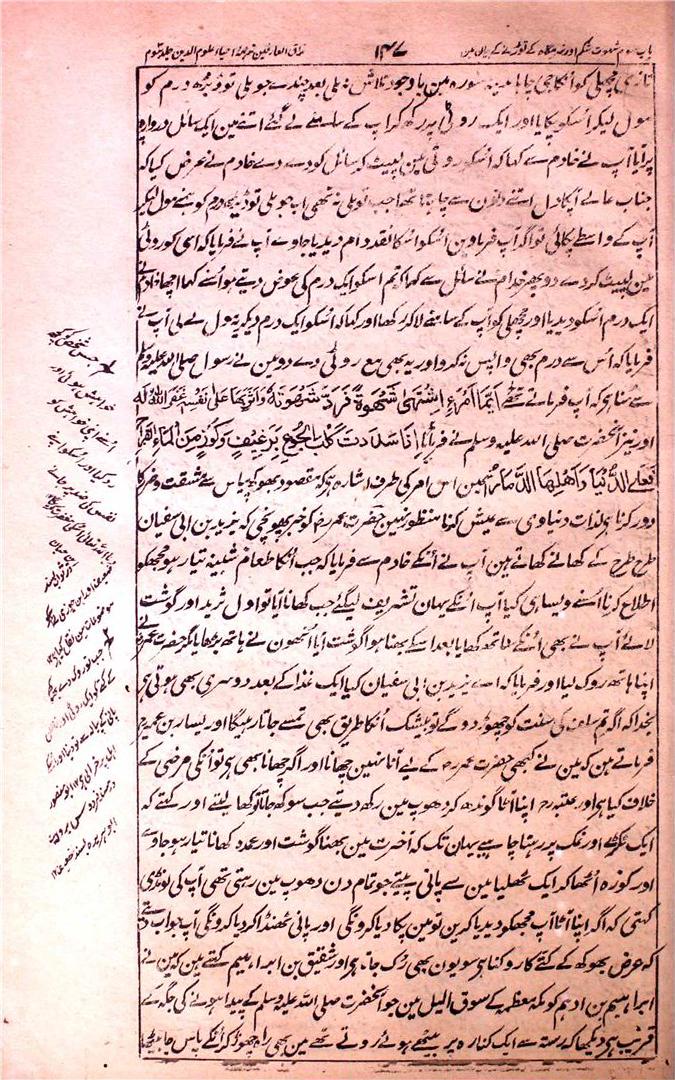 باب سوم شہوت شکم اور شرمگاہ کے توڑنے کے بیان مین
۱۴۷
مذاق العارفین ترجمۂ احیاء علوم الدین جلد سوم
تازی مچھلی کو آنکا جی چاہا مدینہ منورہ مین باوجود تلاش نہ ملی بعد چندے جو ملی تو ڈیڑھ درم کو
مول لیکر اُسکو پکایا اور ایک روٹی پر رکھکر آپ کے سامنے لے گئے اتنے مین ایک سائل دروازہ
پر آیا آپ نے خادم سے کہا کہ اُسکو روٹی مین لپیٹ کر سائل کو دے دے خادم نے عرض کیا کہ
جناب عالے آپکا دل اتنے دنون سے چاہتا تھا جب تو ملی نہ تھی اب جو ملی تو ڈیڑھ درم کو ہمنے مول لیکر
آپ کے واسطے پکائی تو اگر آپ فرماوین اُسکو اُسکا نقد دام دیدیا جاوے آپ نے فرمایا کہ اسی کو روٹی
مین لپیٹ کر دے دو پھر خادم نے سائل سے کہا کہ تم اسکو ایک درم کی عوض دیتے ہو اُسنے کہا اچھا خادم نے
ایک درم اُسکو دیدیا اور مچھلی کو آپ کے سامنے لا کر رکھا اور کہا کہ اُسکو ایک درم دیکر یہ مول لے لی آپ نے
فرمایا کہ اُس سے درم بھی واپس نہ کرو اور یہ بھی مع روٹی دے دو مین نے رسول صلی اللہ علیہ وسلم
سے سنا ہی کہ آپ فرماتے تھے اَیُّمَا امْرِءٍ اِشْتَهٰی شَهْوَةً فَرَدَّ شَهْوَتَهٗ وَاٰثَرَ بِهَا عَلٰی نَفْسِهٖ غَفَرَ اللّٰهُ لَهٗ
اور نیز آنحضرت صلی اللہ علیہ وسلم نے فرمایا اِذَا سَدَدْتَ كَلْبَ الْجُوْعِ بِرَغِیْفٍ وَكُوْزٍ مِنَ الْمَاءِ الْقَرَاحِ
فَعَلَی الدُّنْیَا وَاَهْلِهَا الدَّمَارُ مین اس امر کی طرف اشارہ ہی کہ مقصود بھوکھ پیاس سے مشقت و ضرر کا
دور کرنا ہی لذات دنیاوی سے عیش کرنا منظور نہین حضرت عمر رض کو خبر پھونچی کہ یزید بن ابی سفیان
طرح طرح کے کھانے کھاتے ہین آپ نے اُنکے خادم سے فرمایا کہ جب اُنکا طعام شبینہ تیار ہو مجھکو
اطلاع کرنا اُسنے ویسا ہی کیا آپ اُنکے یہان تشریف لیگئے جب کھانا آیا تو اول ثرید اور گوشت
لائے آپ نے بھی اُنکے ساتھ کھایا بعد اسکے بھنا ہوا گوشت آیا اُنھون نے ہاتھ بڑھایا مگر حضرت عمر رض نے
اپنا ہاتھ روک لیا اور فرمایا کہ اے یزید بن ابی سفیان کیا ایک غذا کے بعد دوسری بھی ہوتی ہی
بخدا کہ اگر تم سلف کی سنت کو چھوڑ دو گے تو بیشک اُنکا طریق بھی تمسے جاتا رہیگا اور یسار بن عمیر رح
فرماتے ہین کہ مین نے کبھی حضرت عمر رض کے لیے آٹا نہین چھانا اور اگر چھانا بھی ہی تو اُنکی مرضی کے
خلاف کیا ہی اور عتبہ رح اپنا آٹا گوندھ کر دھوپ مین رکھ دیتے جب سوکھ جاتا تو کھا لیتے اور کہتے کہ
ایک ٹکڑے اور نمک پر رہنا چاہیے یہان تک کہ آخرت مین بھنا گوشت اور عمدہ کھانا تیار ہو جاوے
اور کوزہ اُٹھا کر ایک ٹھلیا مین سے پانی پیتے جو تمام دن دھوپ مین رہتی تھی آپ کی لونڈی
کہتی کہ اگر اپنا آٹا آپ مجھکو دیدیا کرین تو مین پکا دیا کرونگی اور پانی ٹھنڈا کر دیا کرونگی آپ جواب دیتے
کہ غرض بھوکھ کے کتے کا روکنا ہی سو یون بھی رُک جاتا ہی اور شقیق بن ابراہیم کہتے ہین کہ مین نے
ابراہیم بن ادہم کو مکہ معظمہ کے سوق اللیل مین جو آنحضرت صلی اللہ علیہ وسلم کے پیدا ہونے کی جگہ کے
قریب ہی دیکھا کہ رستہ سے ایک کنارہ پر بیٹھے ہوئے روتے تھے مین بھی راہ چھوڑ کر اُنکے پاس جا بیٹھا
جس شخص کو کچھ
خواہش ہوئی اور
اُسنے اپنی خواہش کو
روکدیا اور اُسکو اپنے